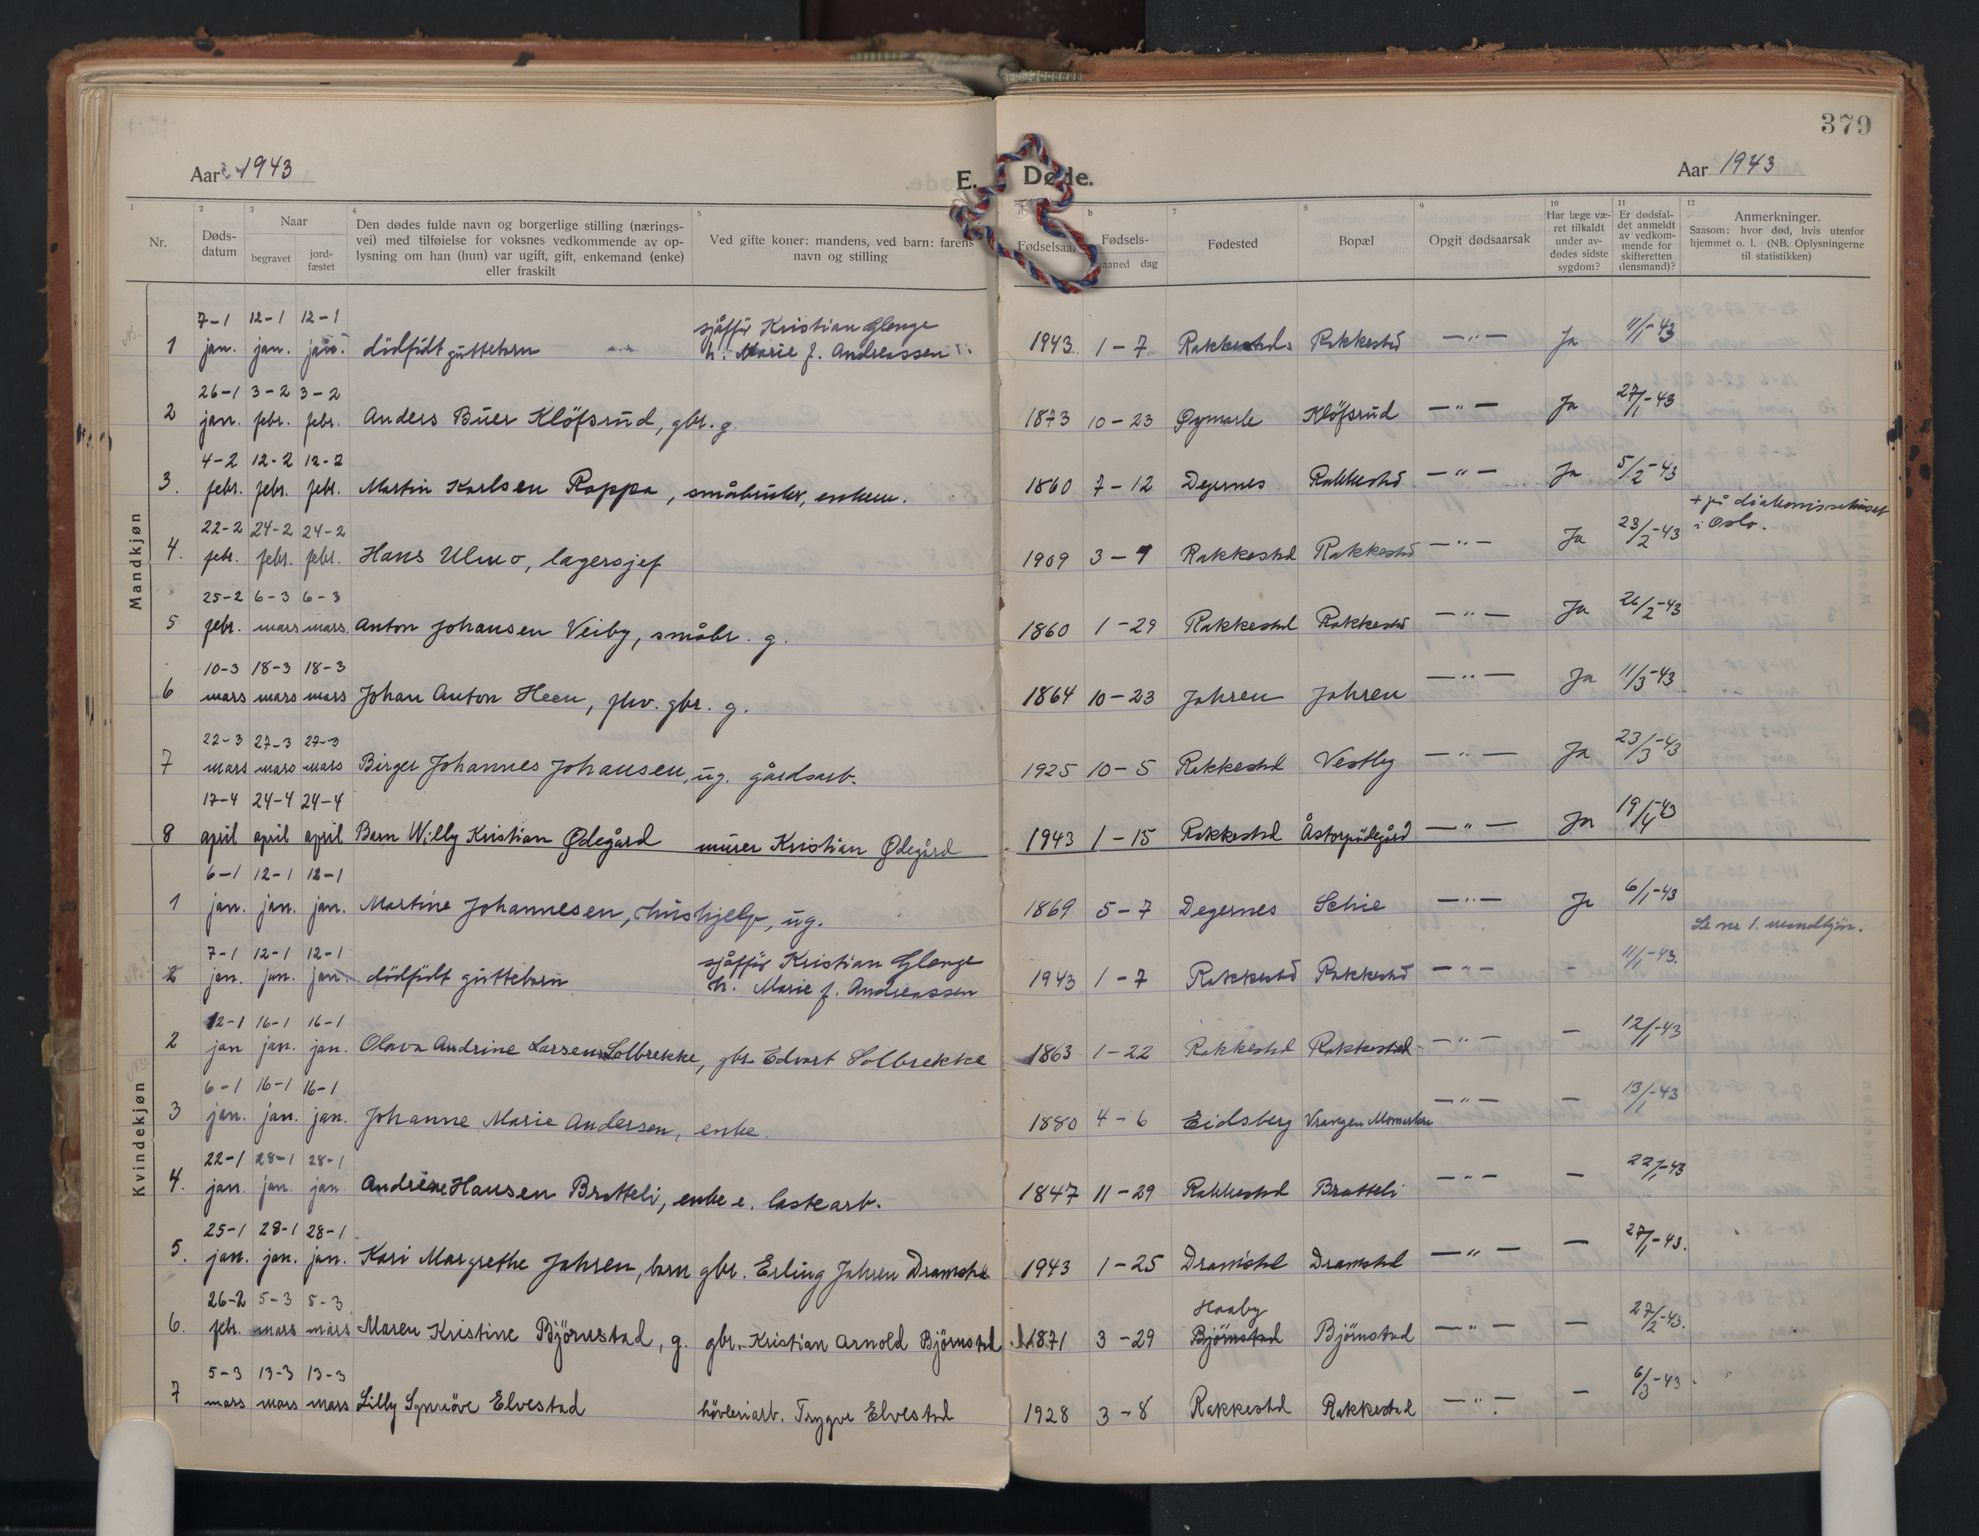 379
Aar 1943
E. Døde.
Aar 1943
1 2 3 4 5 b 7 8 9 10 11 12
Nr.
Døds-
datum
Naar
begravet
jord-
fæstet
Den dødes fulde navn og borgerlige stilling (nærings-
vei) med tilføielse for voksnes vedkommende av op-
lysning om han (hun) var ugift, gift, enkemand (enke)
eller fraskilt
Ved gifte koner: mandens, ved barn: farens
navn og stilling
Fødselsaar
Fødsels-
maaned dag
Fødested
Bopæl
Opgit dødsaarsak
Har læge væ-
ret tilkaldt
under av-
dødes sidste
sygdom?
Er dødsfal-
det anmeldt
av vedkom-
mende for
skifteretten
(lensmand)?
Anmerkninger.
Saasom: hvor død, hvis utenfor
hjemmet o. l. (NB. Oplysningerne
til statistikken)
Mandkjøn
7-1 12-1 12-1 sjåfför Kristian Glenge
1 jan. jan. jan. dödfödt guttebarn h. Marie f. Andreassen 1943 1-7 Rakkestad Rakkestad —"— Ja 11/1-43
26-1 3-2 3-2
2 jan. febr. febr. Anders Buer Klöfsrud, gbr. g. 1873 10-23 Øymark Klöfsrud —"— Ja 27/1-43
4-2 12-2 12-2
3. febr. febr. febr. Martin Karlsen Rappa, småbruker, enkem. 1860 7-12 Degernes Rakkestad —"— Ja 5/2-43
+ på diakonissehuset
i Oslo.
22-2 24-2 24-2
4. febr. febr. febr. Hans Ulmo, lagersjef 1909 3-9 Rakkestad Rakkestad —"— Ja 23/2-43
25-2 6-3 6-3
5 febr. mars mars Anton Johansen Veiby, småbr. g. 1860 1-29 Rakkestad Rakkestad —"— Ja 26/2-43
10-3 18-3 18-3
6 mars mars mars Johan Anton Heen, fhv. gbr. g. 1864 10-23 Jahren Jahren —"— Ja 11/3-43
22-3 27-3 27-3
7 mars mars mars Birger Johannes Johansen, ug. gårdsarb. 1925 10-5 Rakkestad Vestby —"— Ja 23/3-43
17-4 24-4 24-4
8 april april april Barn Willy Kristian Ødegård murer Kristian Ødegård 1943 1-15 Rakkestad Åstorpødegård —"— Ja 19/4-43
Kvindekjøn
6-1 12-1 12-1
1 jan. jan. jan. Martine Johannesen, hushjelp, ug. 1869 5-7 Degernes Schie —"— Ja 6/1-43
Se nr 1. mandkjön.
7-1 12-1 12-1 sjåfför Kristian Glenge
2 jan. jan. jan. dödfödt guttebarn h. Marie f. Andreassen 1943 1-7 Rakkestad Rakkestad —"— - 11/1-43.
12-1 16-1 16-1
2 jan jan. jan. Olava Andrine Larsen Solbrekke, gbr. Edvart Solbrekke 1863 1-22 Rakkestad Rakkestad —"— - 12/1-43
6-1 16-1 16-1
3 jan. jan. jan. Johanne Marie Andersen, enke. 1880 4-6 Eidsberg Vrangen Momarken —"— - 13/1-43
22-1 28-1 28-1
4. jan. jan. jan. Andrine Hansen Bratteli, enke e. lastearb. 1847 11-29 Rakkestad Bratteli —"— - 22/1-43
25-1 28-1 28-1
5. jan. jan. jan. Kari Margrethe Jahren, barn gbr. Erling Jahren Dramstad 1943 1-25 Dramstad Dramstad —"— - 27/1-43.
26-2 5-3 5-3 Haaby
6. febr. mars mars Maren Kristine Björnstad, g. gbr. Kristian Arnold Björnstad 1871 3-29 Björnstad Björnstad —"— - 27/2-43.
5-3 13-3 13-3
7 mars mars mars Lilly Synnöve Elvestad hövleriarb. Trygve Elvestad 1928 3-8 Rakkestad Rakkestad —"— - 6/3-43